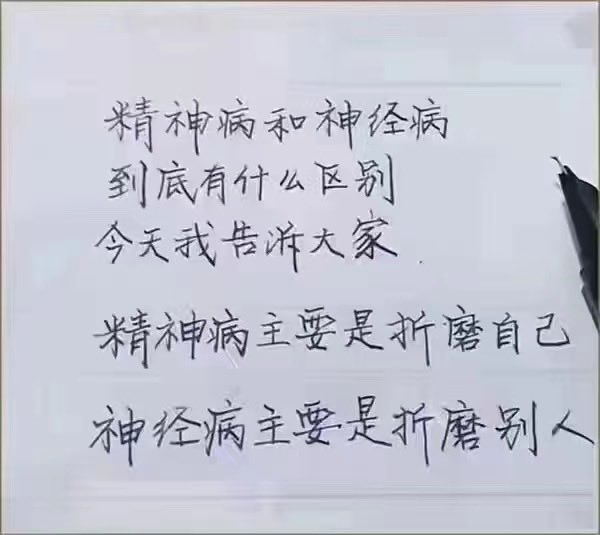 精神病和神经病
到底有什么区别
今天我告诉大家
精神病主要是折磨自己
神经病主要是折磨别人